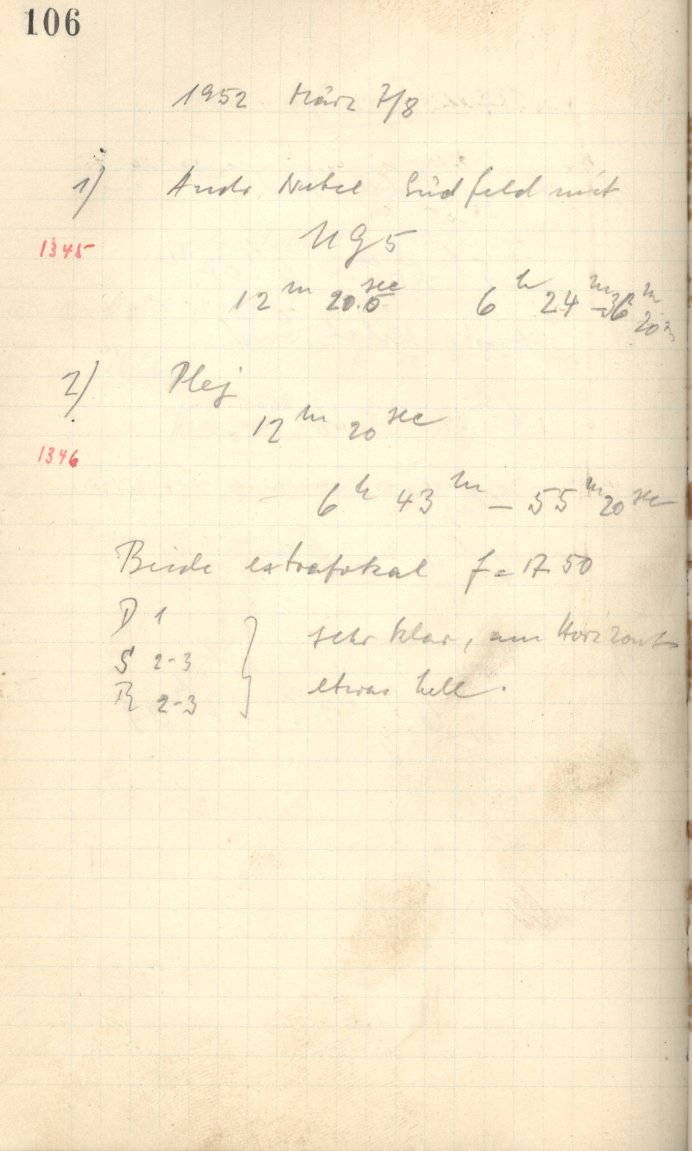 106
1952 März 7/8
1) Andr. Nebel Südfeld mit
1345 UG5
12 m 20.5 sec 6 h 24 m - 36 m 20
2) Plej
12 m 20 sec
1346
6 h 43 m - 55 m 20 sec
Beide extrafokal f = 17 50
D 1
S 2-3 sehr klar, am Horizont
R 2-3 etwas hell.